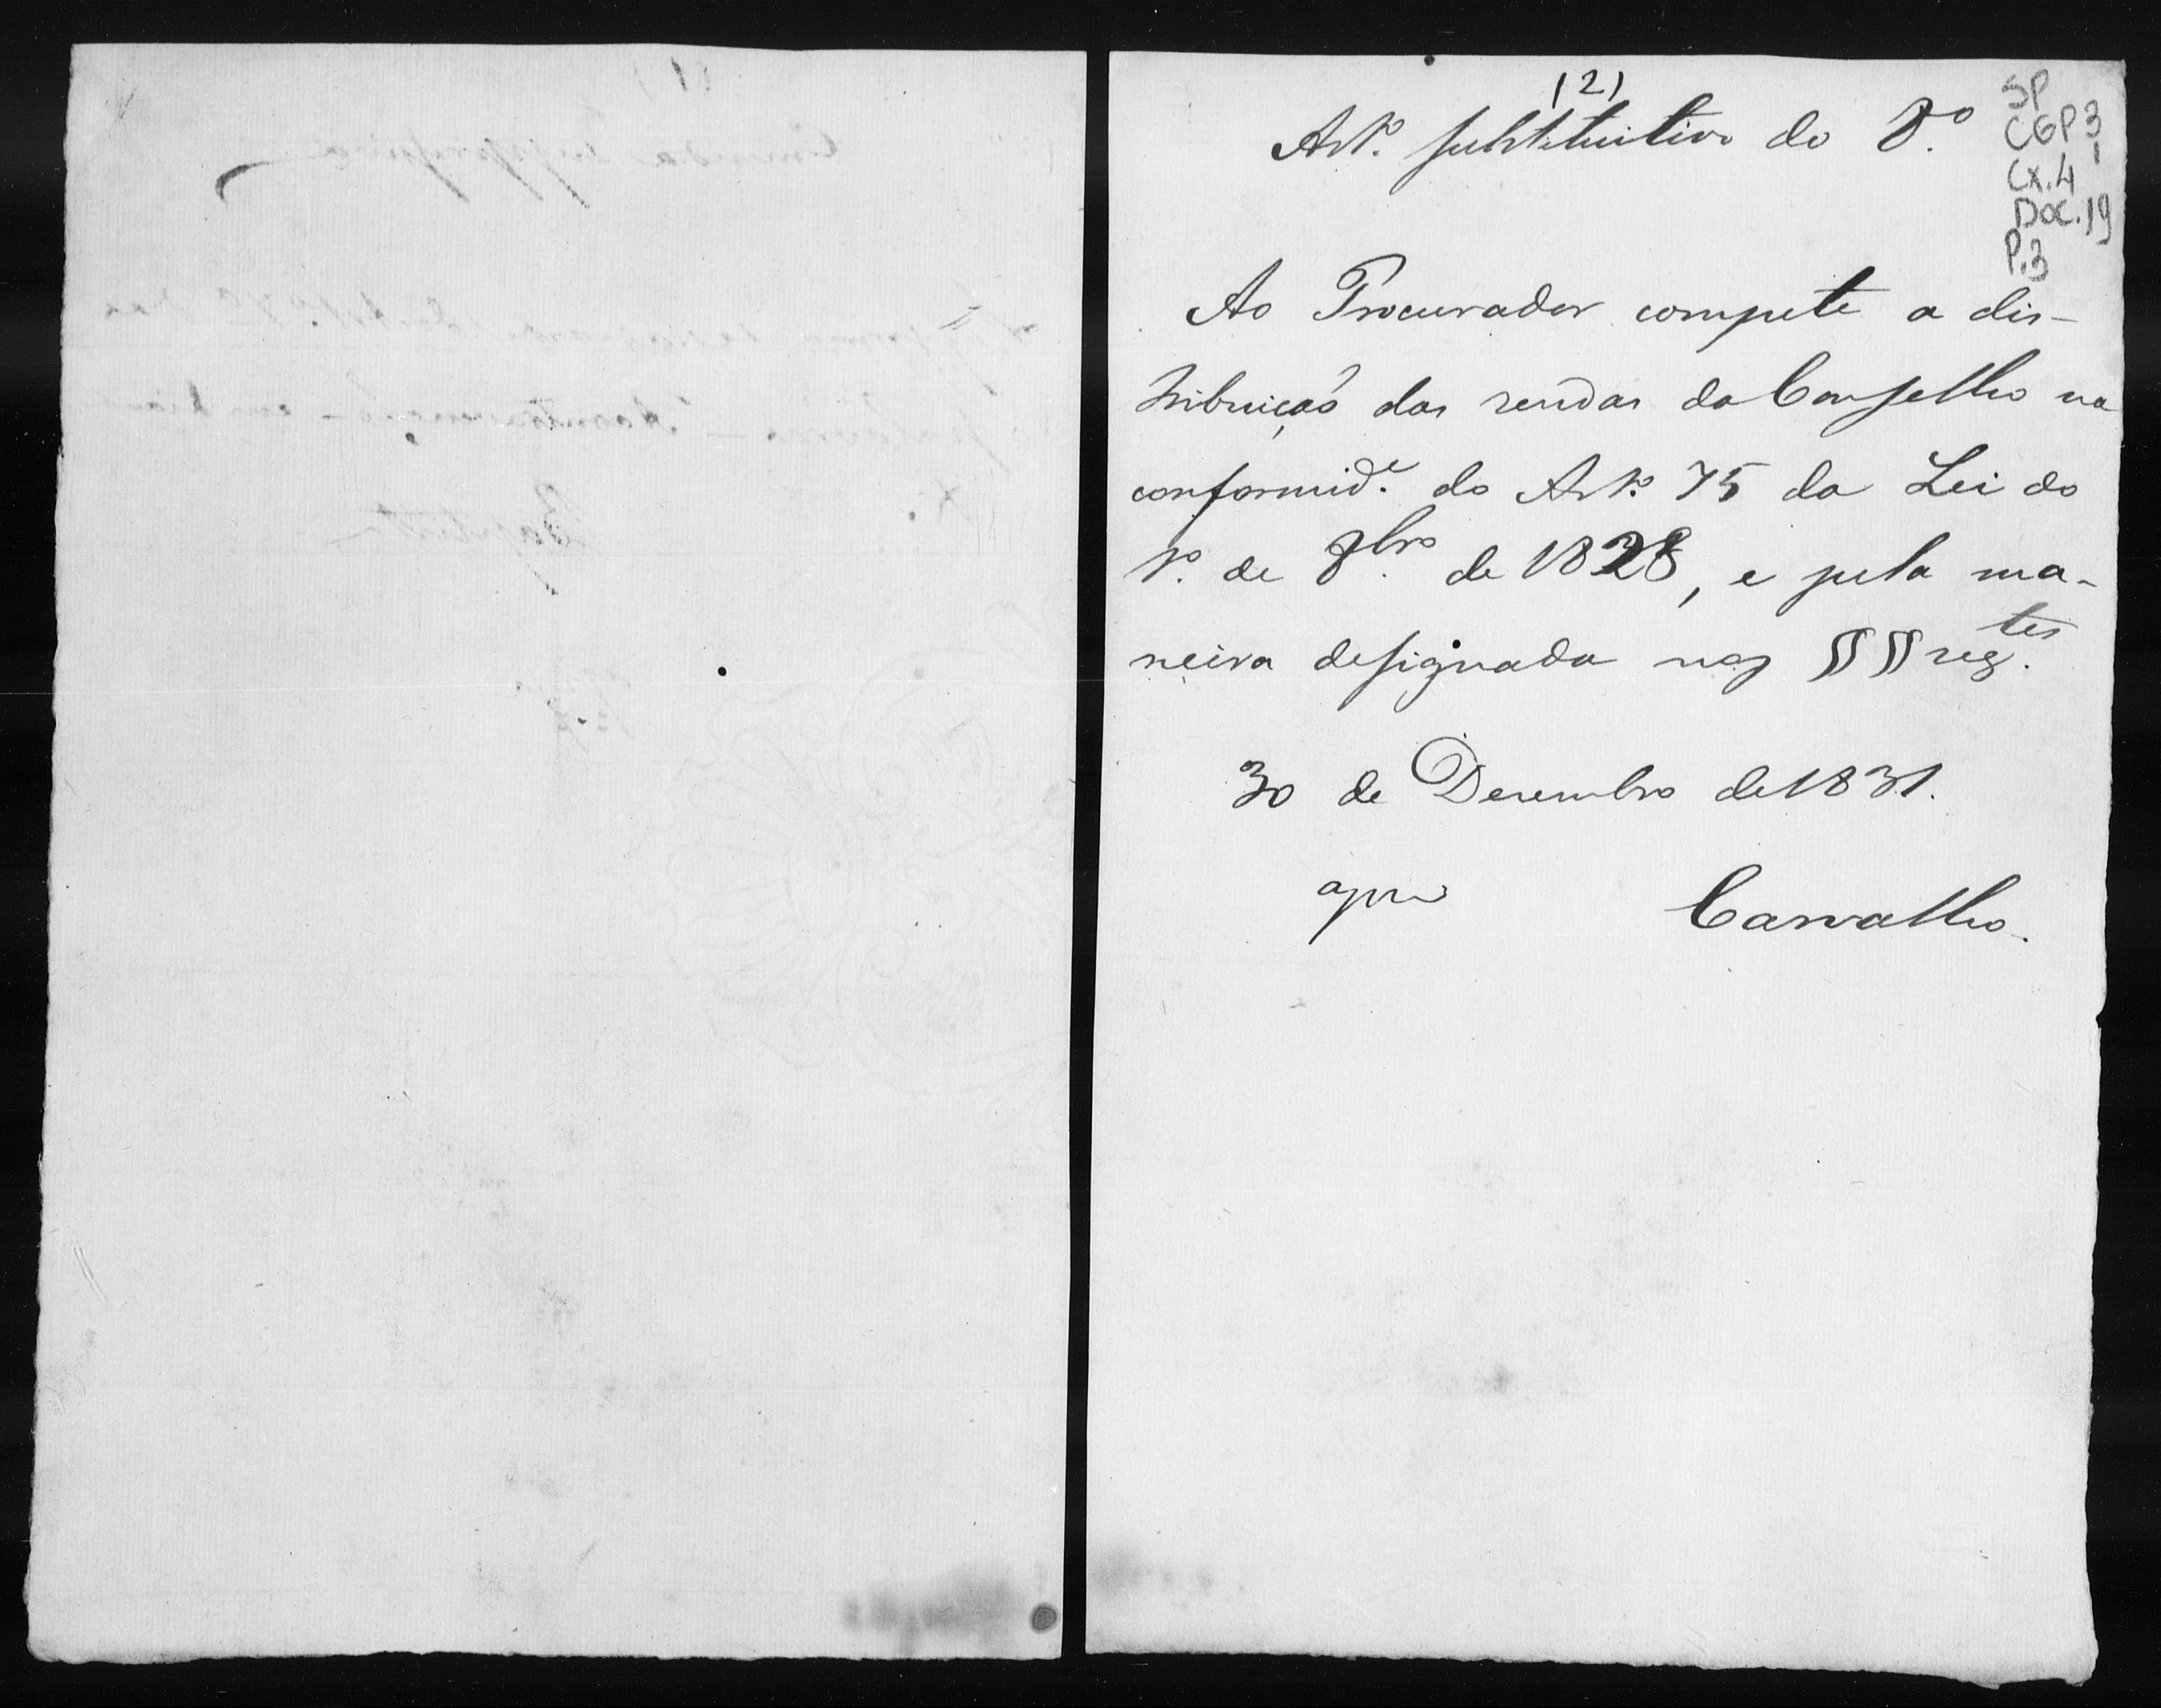 (2)
Art.º substituitivo do 8.º
SP
CGP3
1
CX.4
DOC.19
P.3
Ao Procurador compete a dis-
tribuiçaõ das rendas do Conselho na
conformid.e do Art.º 75 da Lei do
1.º de 8.bro de 1828, e pela ma-
neira designada nos §§ §§ seg.tes
30 de Dezembro de 1831.
Carvalho.